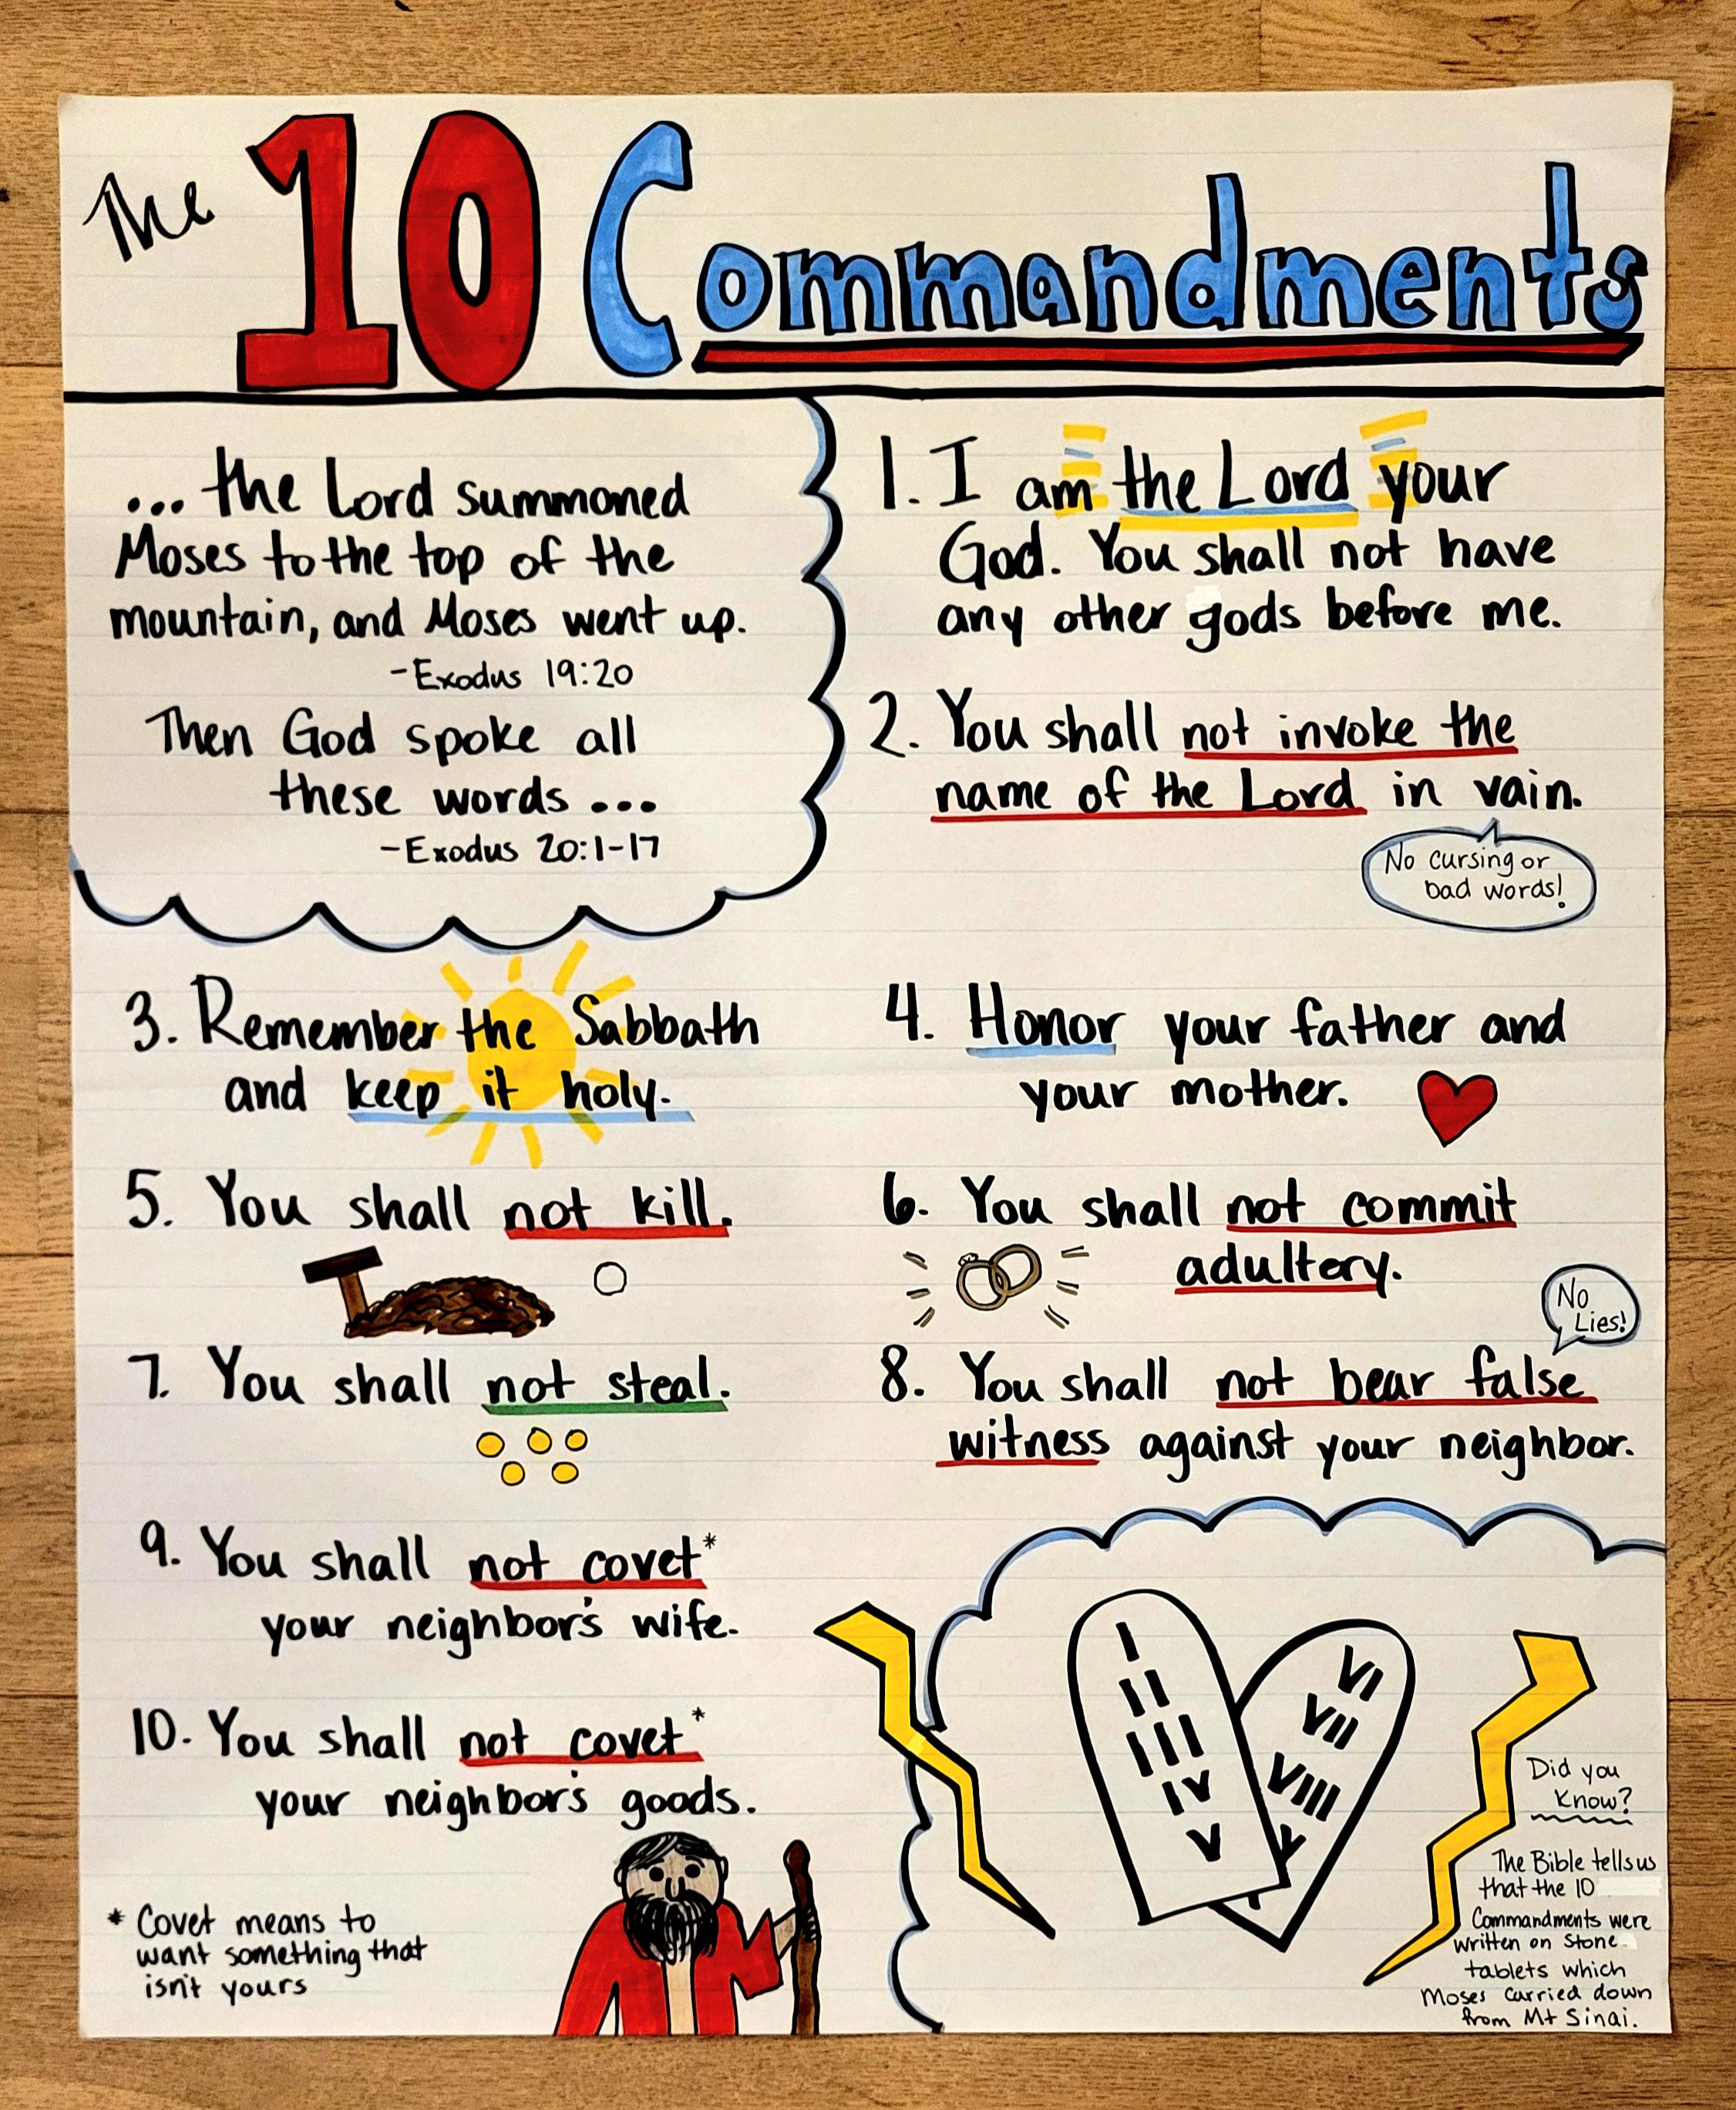 The 10 Commandments
... the Lord summoned
Moses to the top of the
mountain, and Moses went up.
-Exodus 19:20
Then God spoke all
these words ...
-Exodus 20:1-17
1. I am the Lord your
God. You shall not have
any other gods before me.
2. You shall not invoke the
name of the Lord in vain.
No cursing or
bad words!
3. Remember the Sabbath
and keep it holy.
4. Honor your father and
your mother.
5. You shall not kill.
6. You shall not commit
adultery.
7. You shall not steal.
No
Lies!
8. You shall not bear false
witness against your neighbor.
9. You shall not covet*
your neighbor's wife.
10. You shall not covet*
your neighbor's goods.
* Covet means to
want something that
isn't yours
I
II
III
IV
V
VI
VII
VIII
Did you
Know?
The Bible tells us
that the 10
Commandments were
written on Stone
tablets which
Moses carried down
from Mt Sinai.